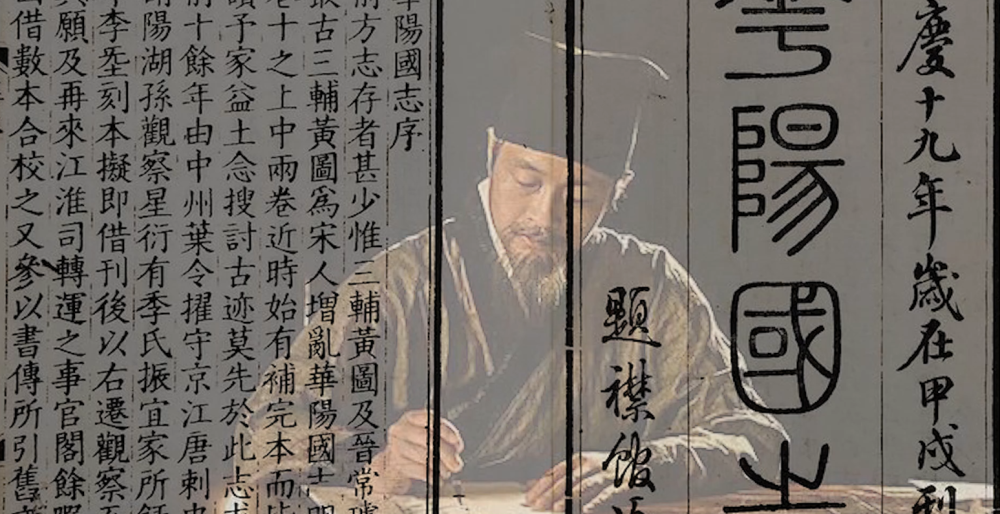 慶十九年歲在甲戌刊
陽國
題襟館
華陽國志序
前方志存者甚少惟三輔黃圖及晉常璩
最古三輔黃圖爲宋人增亂華陽國志明
卷十之上中兩卷近時始有補完本而皆
予家益土念搜討古迹莫先於此志求
前十餘年由中州葉令擢守京江唐刺史
陽湖孫觀察星衍有季氏振宜家所
李刻本擬即借刊後以右遷觀察
願及再來江淮司轉運之事官閣餘暇
借數本合校之又參以書傳所引舊